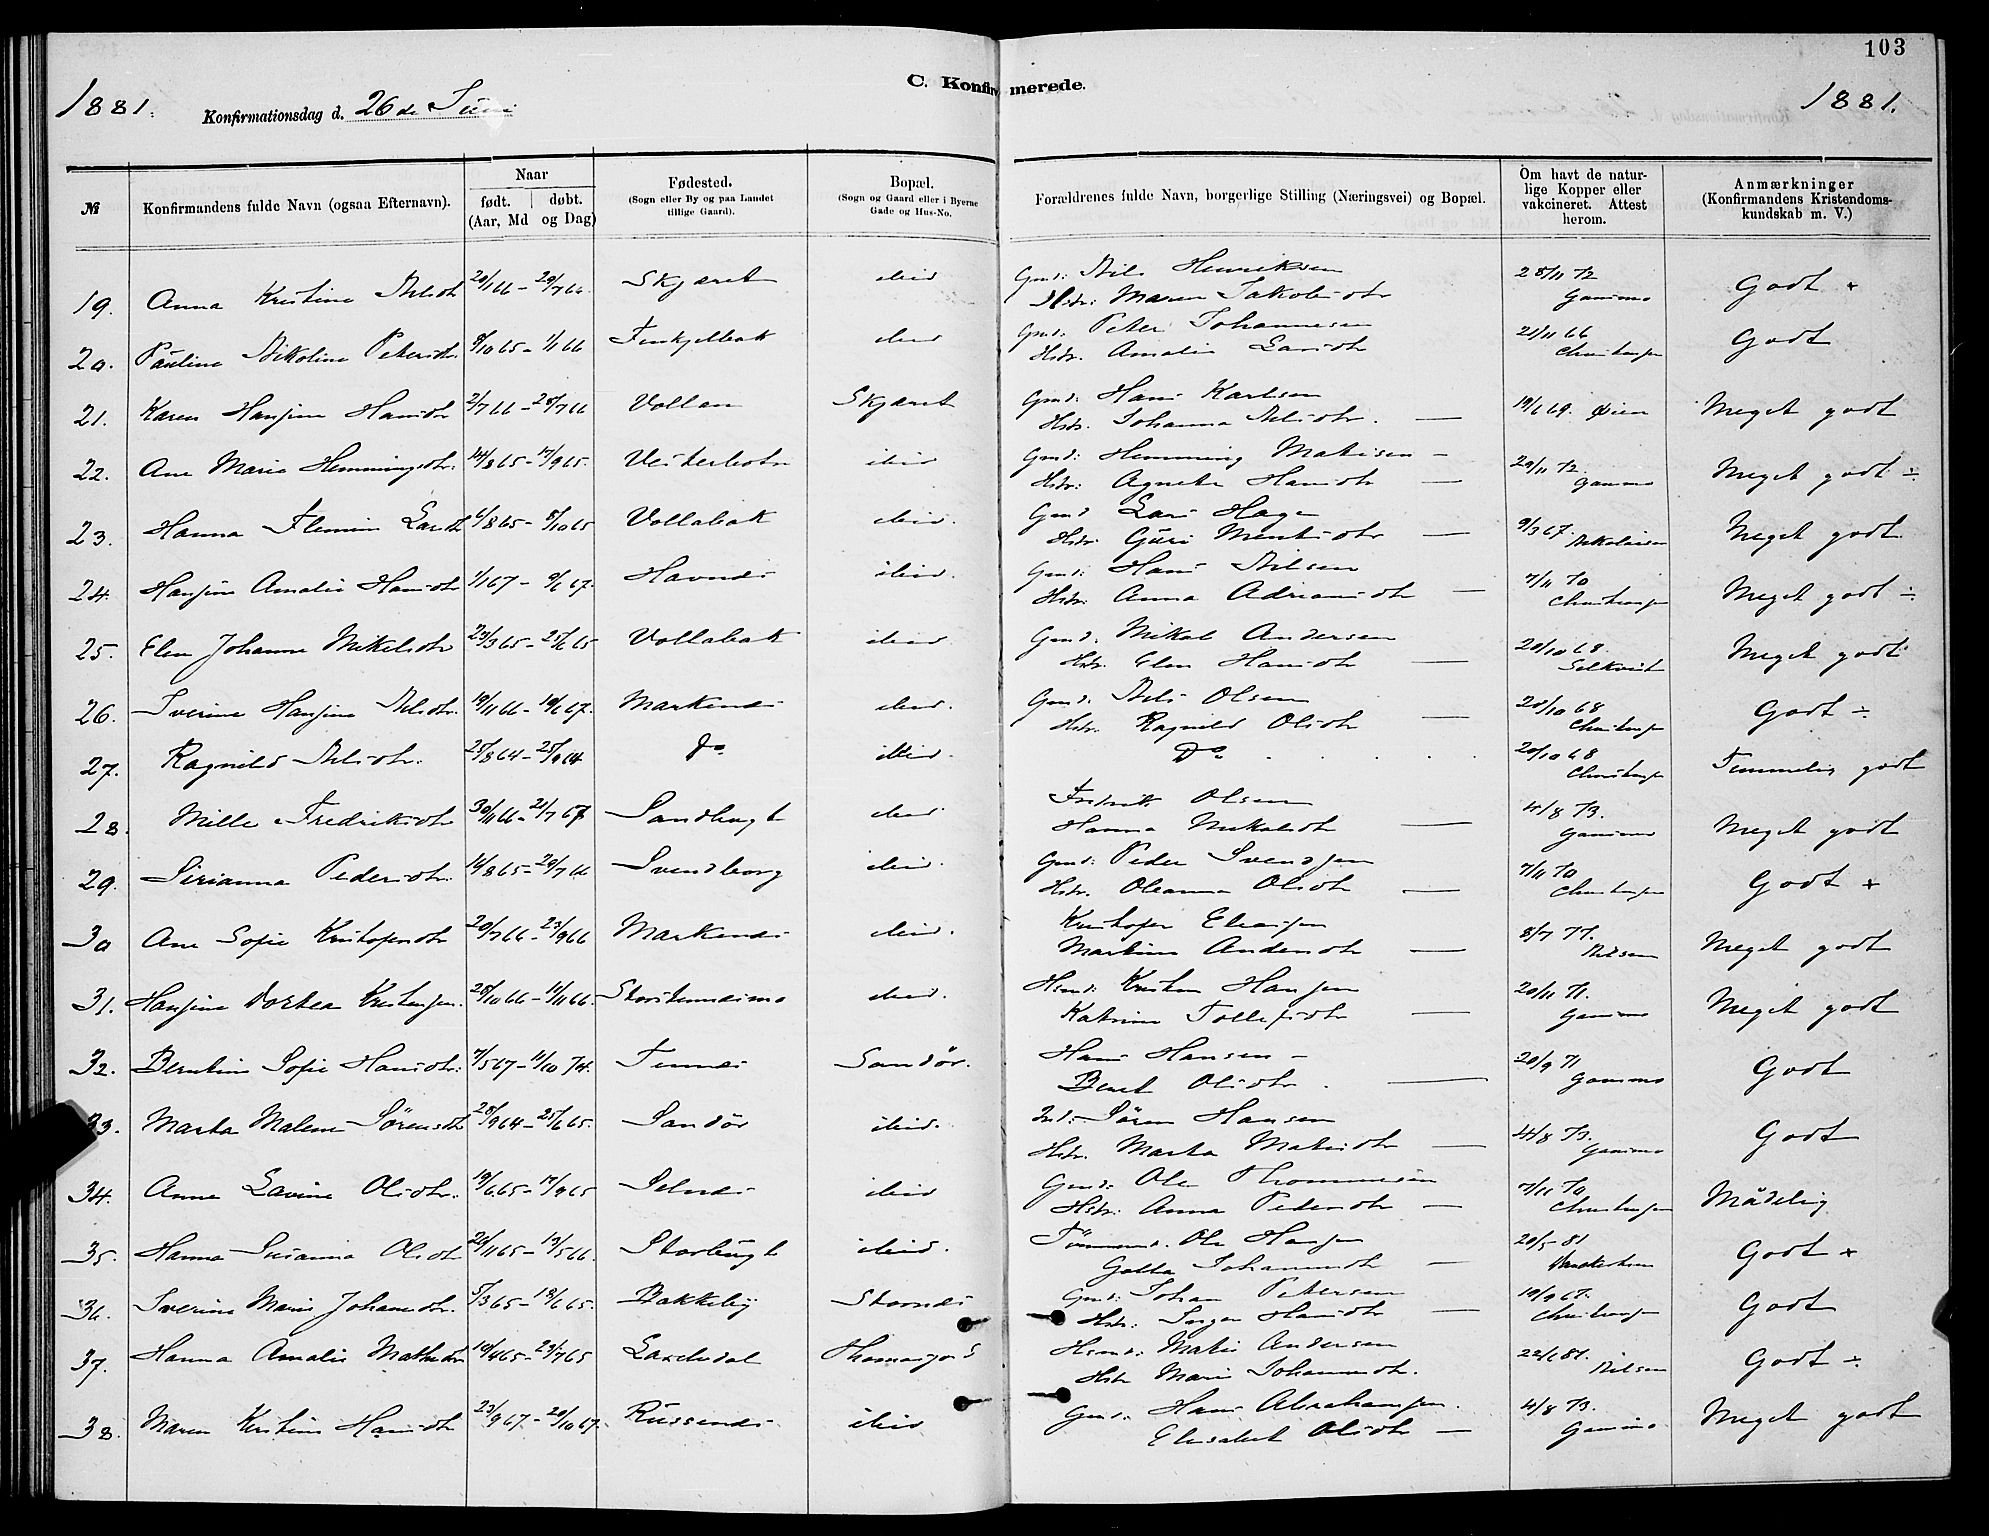 103
C. Konfirmerede.
1881. Konfirmationsdag d. 26de Juni 1881.
№ Konfirmandens fulde Navn (ogsaa Efternavn). Naar født. døbt. (Aar, Md og Dag) Fødested. (Sogn eller By og paa Landet tillige Gaard). Bopæl. (Sogn og Gaard eller i Byerne Gade og Hus-No. Forældrenes fulde Navn, borgerlige Stilling (Næringsvei) og Bopæl. Om havt de naturlige Kopper eller vakcineret. Attest herom. Anmærkninger (Konfirmandens Kristendomskundskab m. V.)
19. Anna Kristine Nilsdtr 20/1 66 - 29/7 66. Skjæret ibid Gmd: Nils Henriksen 28/11 72 Godt +
Hstr: Maren Jakobsdtr
20. Pauline Nikoline Petersdtr. 8/10 65 - 1/1 66 ibid Gmd: Peter Johannesen 21/11 66 Godt
Hstr. Amalie Larsdtr Christensen
21. Karen Hansine Hansdtr 2/7 66 - 29/7 66 Vollan Skjæret Gmd: Hans Karlsen 19/6 69. Øien Meget godt
Hstr. Johanna Nilsdtr. —
22. Ane Marie Hemmingsdtr. 14/8 65 - 17/9 65. Vesterbotn ibid Gmd: Hemming Matisen — 29/11 72. Meget godt ÷
Hstr: Agnete Hansdtr —
23. Hanna Larsdtr 6/8 65 - 8/10 65 Vollabak ibid. Gmd Lars Hage 9/3 67. Nikolaisen Meget godt.
Hstr. Guri —
24. Hansine Amalie Hansdtr 1/1 67 - 9/6 67. Havnnes ibid. Gmd: Hans Nilsen 7/11 70 Meget godt ÷
Hstr. Anna Adriansdtr — Christensen
25. Elen Johanne Mikelsdtr 23/3 65 - 25/6 65 Vollabak ibid Gmd. Mikal Andersen 20/10 68. Meget godt
Hstr. Elen Hansdtr —
26. Iverine Hansine Nilsdtr. 19/11 66 - 10/6 67. Markenes ibid. Gmd: Nils Olsen 20/10 68 Godt ÷
Hstr. Ragnild Olsdtr — Christensen
27. Ragnild Nilsdtr. 25/8 64 - 25/9 64 Do. ibid. Do. 20/10 68 Temmelig godt
Christensen
28. Mille Fredriksdtr 30/11 66 - 21/7 67 Sandbugt ibid Fredrik Olsen 4/8 73. Meget godt
Hanna Mikalsdtr —
29. Sirianna Pedersdtr. 16/8 65 - 29/7 66 Svendborg ibid. Gmd: Peder Svendsen 7/11 70 Godt +
Hstr. Oleanna Olsdtr — Christensen
30 Ane Sofie Kristofersdtr 20/7 66 - 23/9 66 Markenes ibid. Kristofer 8/7 77. Meget godt
Martine Andersdtr — Nilsen
31. Hansine Dortea 28/10 66 - 11/11 66. ibid. Hsmd: Kristen Hansen 20/11 71. Meget godt
Katrine Tollefsdtr —
32. Berntine Sofie Hansdtr. 7/5 67 - 11/10 74. Tennes Sandør. Hans Hansen — 20/9 71 Godt
Beret Olsdtr. —
33. Marta Malene Sørensdtr 28/9 64 - 25/6 65. Sandør ibid. Ind: Søren Hansen 4/8 73. Godt
Hstr. Marta Matisdtr —
34. Anne Lavine Olsdtr. 19/6 65 - 17/9 65 Selnes ibid Gmd: Ole Thommesen 7/11 70 Mådelig
Hstr. Anna Pedersdtr — Christensen
35. Hanna Susanna Olsdtr 26/11 65 - 13/5 66. Storbugt ibid. Ole Hansen 20/5 - 81 Godt +
Golla Johannesdtr —
36. Iverine Marie Johansdtr. 5/3 65 - 18/6 65. Bakkeby Stornes Gmd: Johan Petersen 19/9 67. Godt
Hstr: Inger Hansdtr — Christensen
37. Hanna Amalie Mathisdtr 10/4 65 - 23/7 65 Hsmd: Matis Andersen 22/6 81. Nilsen Godt ÷
Hstr Marie Johannesdtr.
38. Maren Kristine Hansdtr 23/9 67 - 20/10 67. Russenes ibid Gmd. Hans Abrahamsen. 4/8 73. Meget godt
Elisabet Olsdtr —